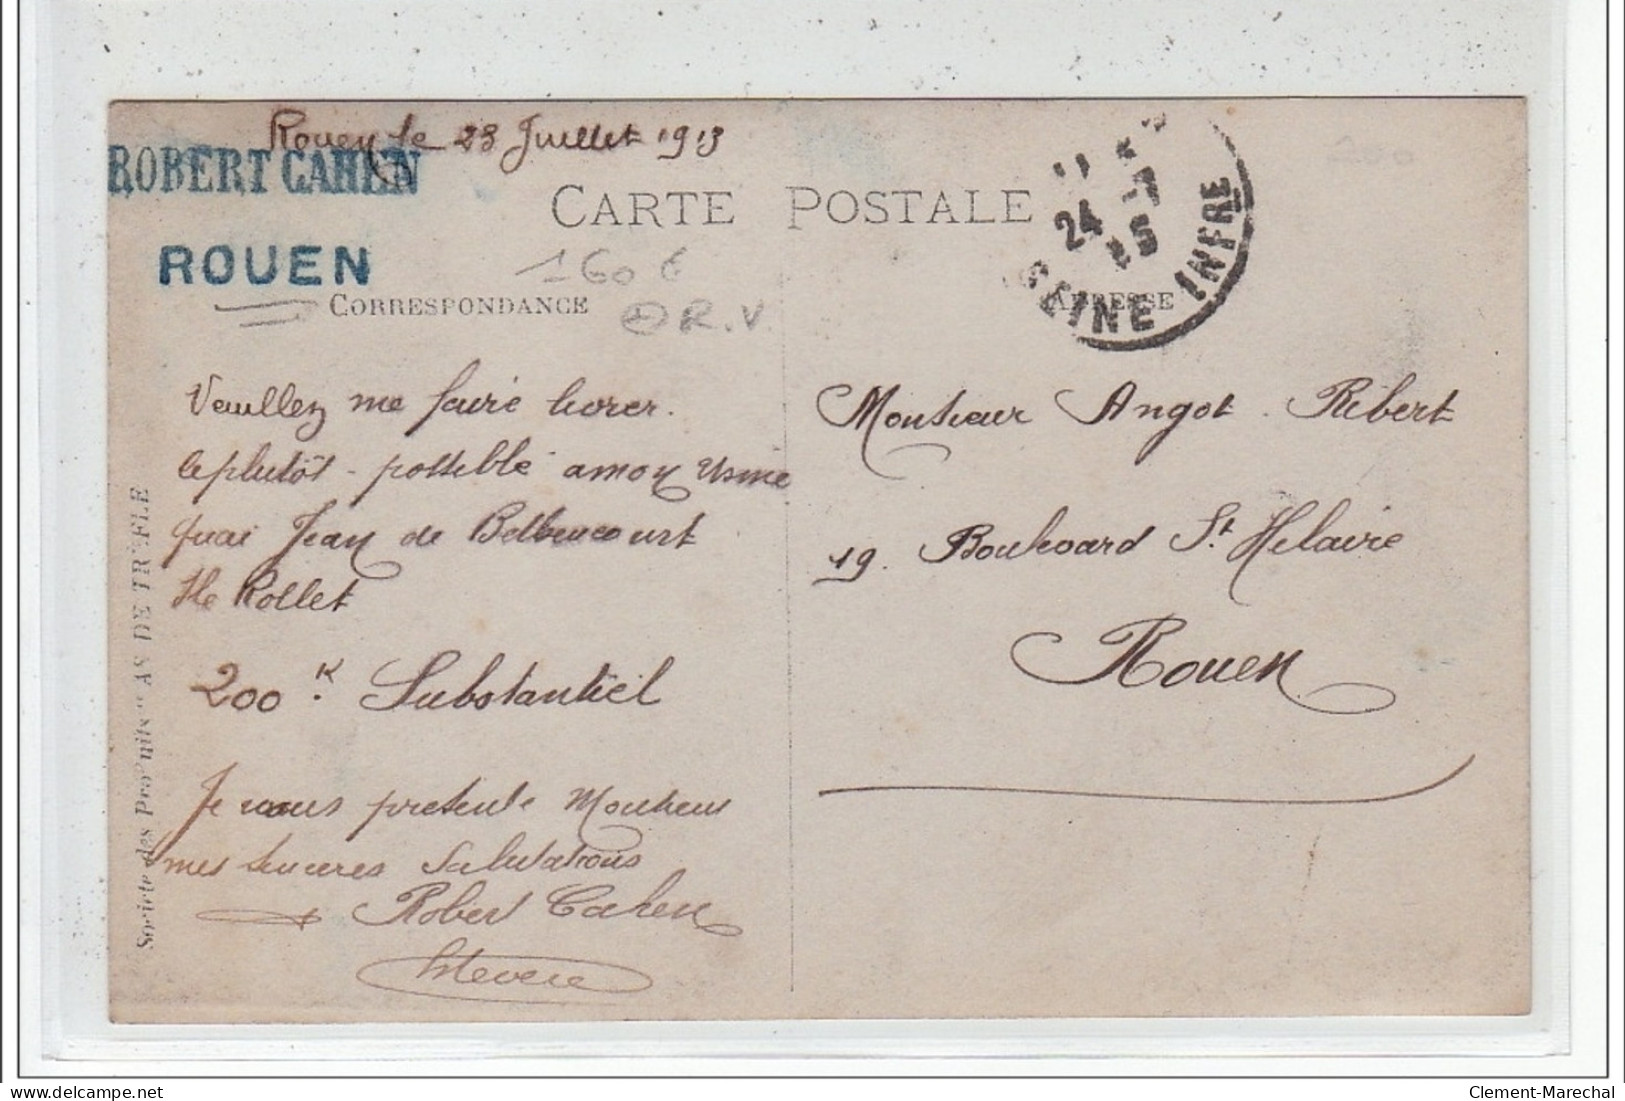 Rouen le 23 Juillet 1913
ROBERT CAHEN
ROUEN
CARTE POSTALE
160 €
R.V
CORRESPONDANCE
ADRESSE
24 -7
SEINE INFRE
200
Veuillez me faire livrer.
le plutôt - possible a mon Usine
quai Jean de Bethencourt
Ile Rollet
200 K. Substantiel
Je vous présente Monsieur
mes sinceres Salutations
Robert Cahen
Monsieur Angot - Ribert
19. Boulevard St Helaire
Rouen
Société des Produits "AS DE TRÈFLE
Clement-Marechal